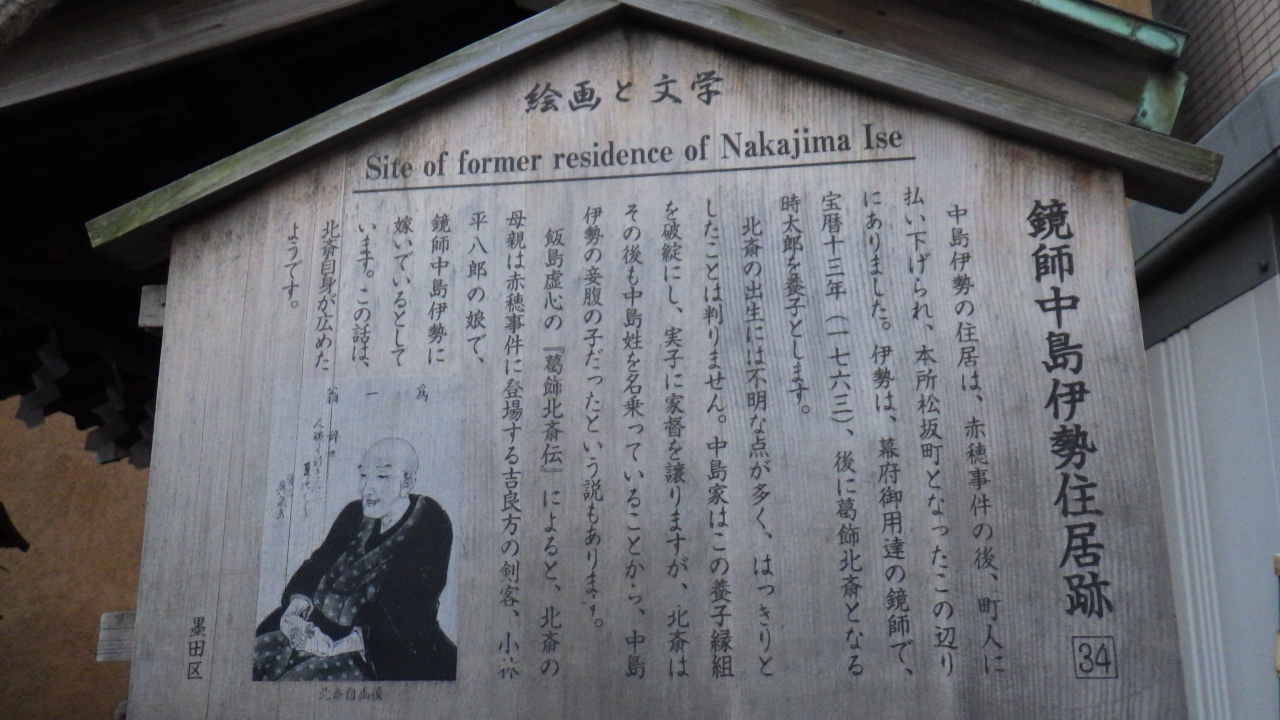 絵画と文学
Site of former residence of Nakajima Ise
鏡師中島伊勢住居跡
34
中島伊勢の住居は、赤穂事件の後、町人に
払い下げられ、本所松坂町となったこの辺り
にありました。伊勢は、幕府御用達の鏡師で、
宝暦十三年（一七六三）、後に葛飾北斎となる
時太郎を養子とします。
北斎の出生には不明な点が多く、はっきりと
したことは判りません。中島家はこの養子縁組
を破綻にし、実子に家督を譲りますが、北斎は
その後も中島姓を名乗っていることから、中島
伊勢の妾腹の子だったという説もあります。
飯島虚心の『葛飾北斎伝』によると、北斎の
母親は赤穂事件に登場する吉良方の剣客、小林
平八郎の娘で、
鏡師中島伊勢に
嫁いでいるとして
います。この話は、
北斎自身が広めた
ようです。
為一翁
北斎自画像
墨田区